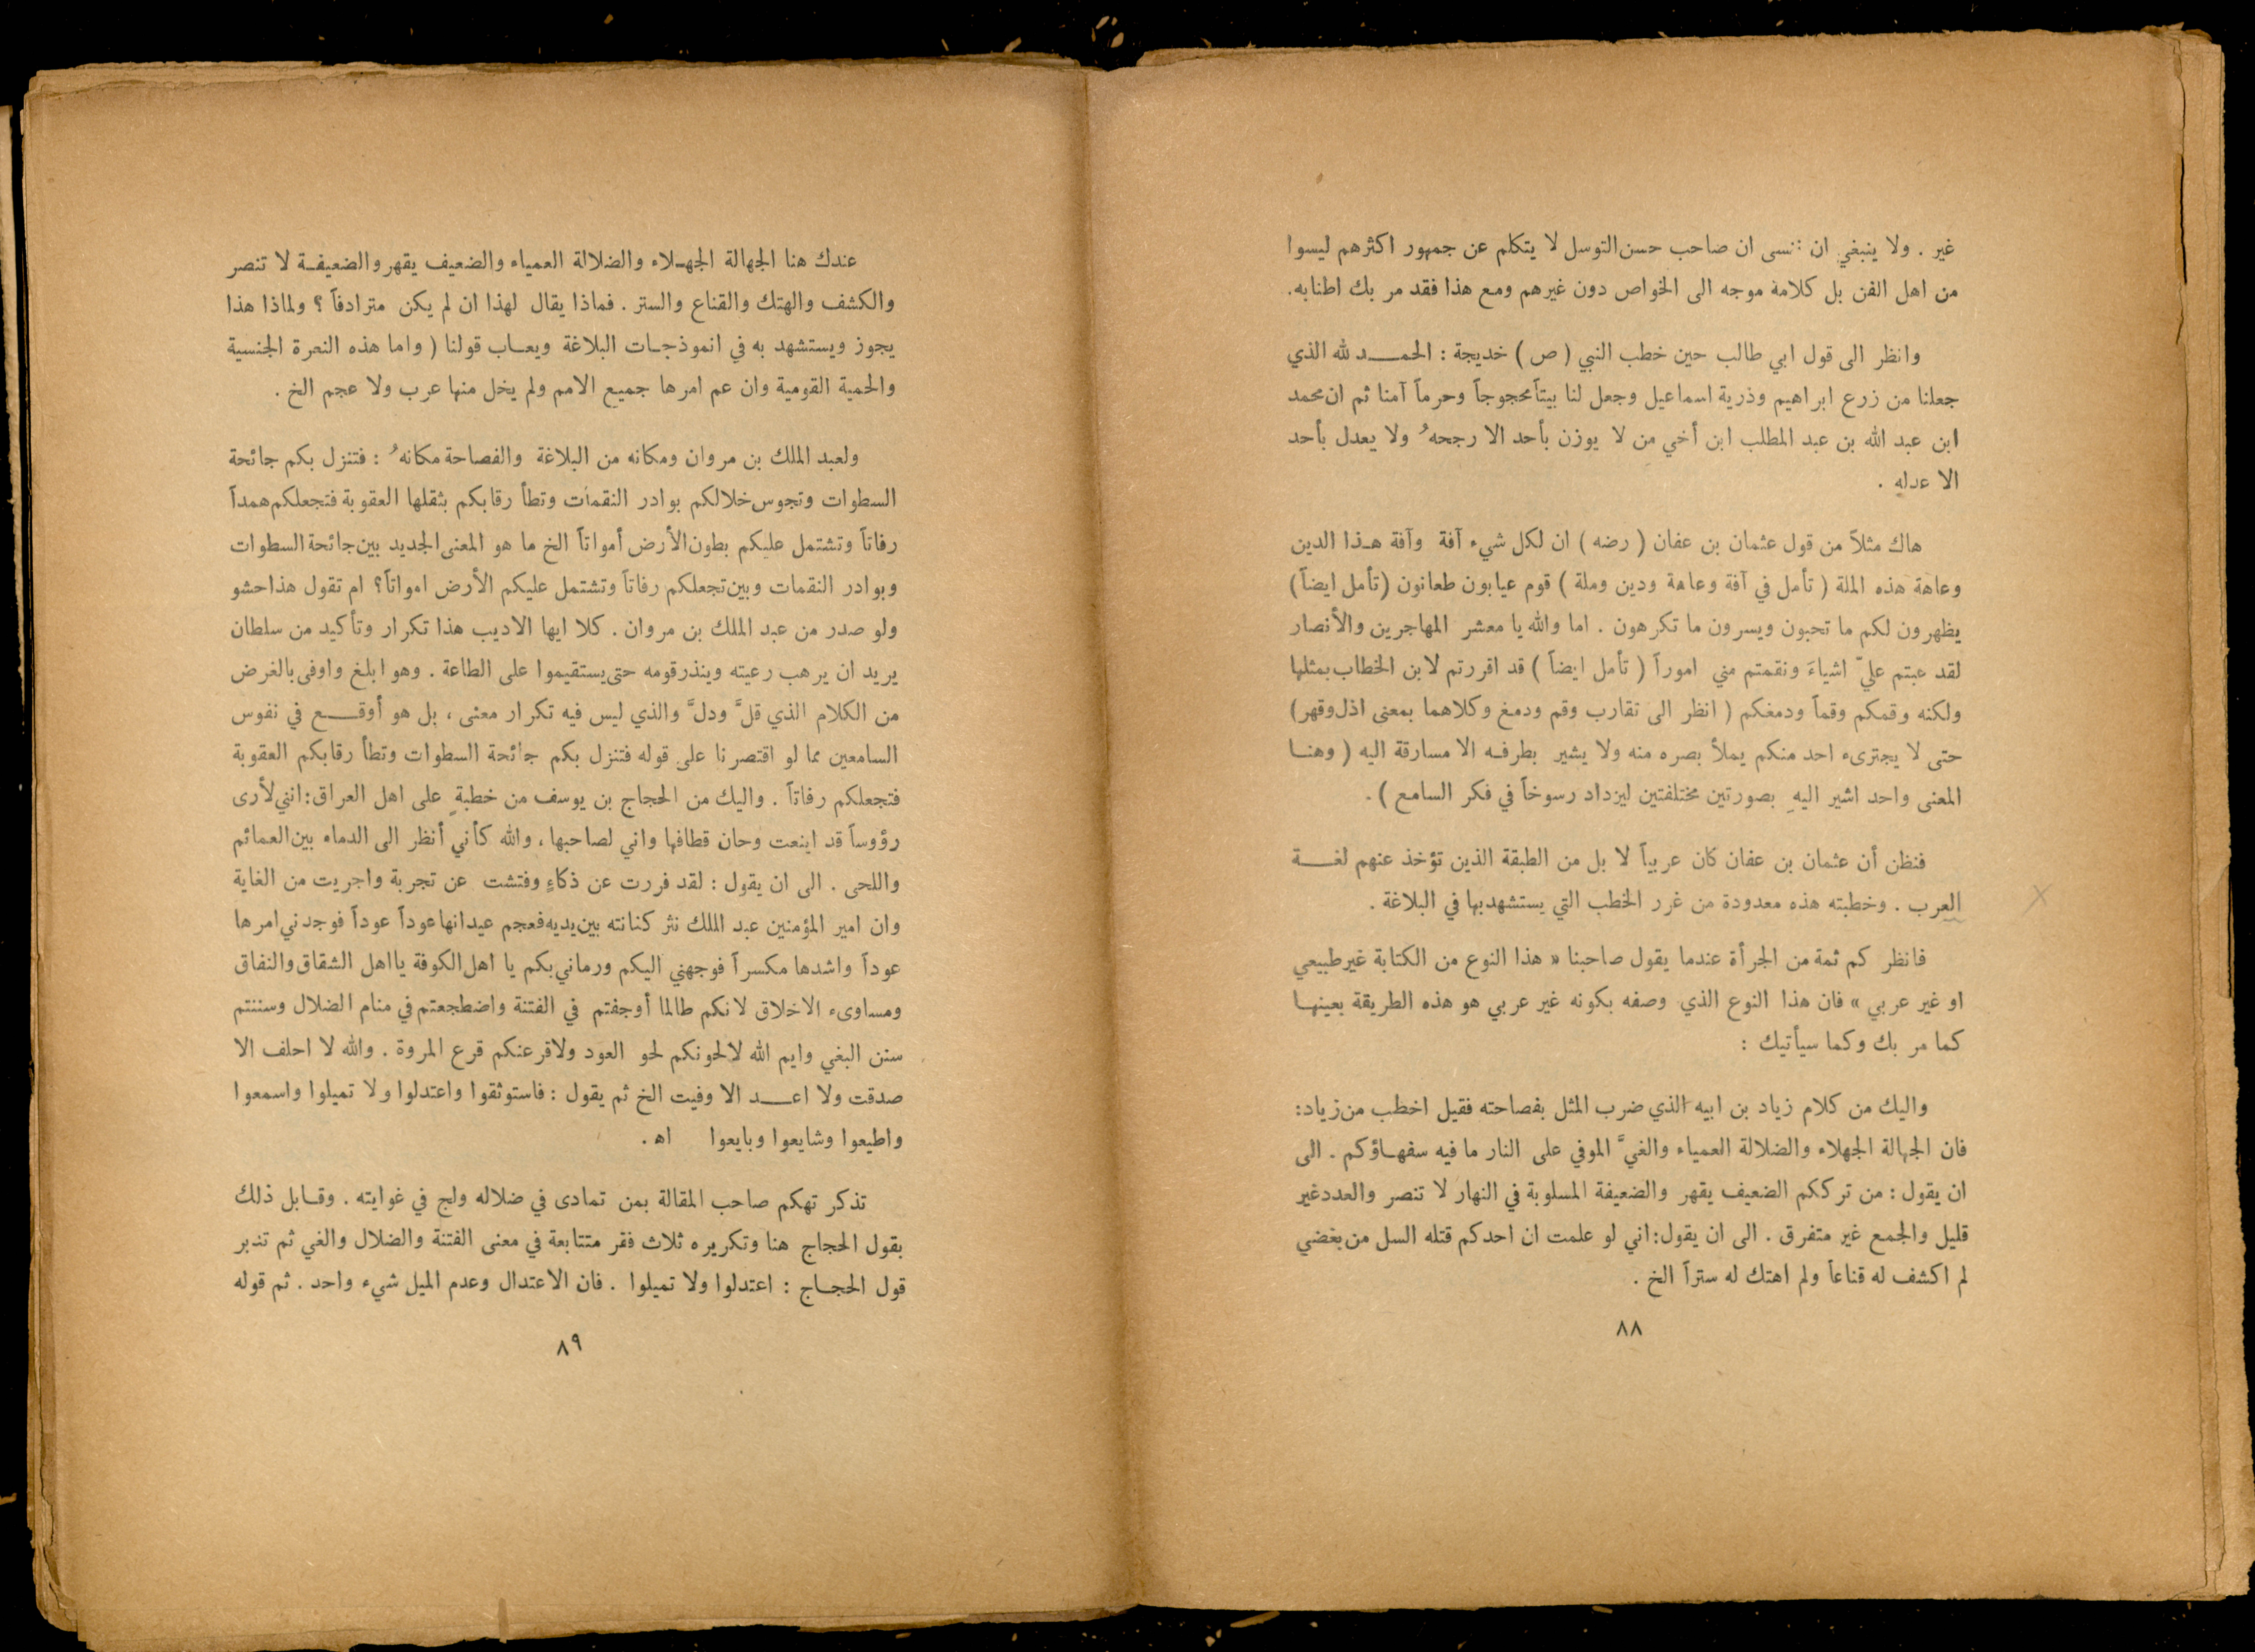 غير . ولا ينبغي ان ننسى ان صاحب حسن التوسل لا يتكلم عن جمهور اكثرهم ليسوا
من اهل الفن بل كلامة موجه الى الخواص دون غيرهم ومع هذا فقد مر بك اطنابه.
وانظر الى قول ابي طالب حين خطب النبي ( ص ) خديجة : الحمد لله الذي
جعلنا من زرع ابراهيم وذرية اسماعيل وجعل لنا بيتاً محجوجاً وحرماً آمنا ثم ان محمد
ابن عبد الله بن عبد المطلب ابن أخي من لا يوزن بأحد الا رجحهُ ولا يعدل بأحد
الا عدله .
هاك مثلاً من قول عثمان بن عفان ( رضه ) ان لكل شيء آفة وآفة هذا الدين
وعاهة هذه الملة ( تأمل في آفة وعاهة ودين وملة ) قوم عيابون طعانون (تأمل ايضاً)
يظهرون لكم ما تحبون ويسرون ما تكرهون . اما والله يا معشر المهاجرين والأنصار
لقد عبتم عليّ اشياءَ ونقمتم مني اموراً ( تأمل ايضاً ) قد اقررتم لابن الخطاب بمثلها
ولكنه وقمكم وقماً ودمغكم ( انظر الى تقارب وقم ودمغ وكلاهما بمعنى اذل وقهر)
حتى لا يجترىء احد منكم يملأ بصره منه ولا يشير بطرفه الا مسارقة اليه ( وهنا
المعنى واحد اشير اليهِ بصورتين مختلفتين ليزداد رسوخاً في فكر السامع ) .
فنظن أن عثمان بن عفان كان عربياً لا بل من الطبقة الذين تؤخذ عنهم لغة
العرب . وخطبته هذه معدودة من غرر الخطب التي يستشهد بها في البلاغة .
فانظر كم ثمة من الجرأة عندما يقول صاحبنا « هذا النوع من الكتابة غير طبيعي
او غير عربي » فان هذا النوع الذي وصفه بكونه غير عربي هو هذه الطريقة بعينها
كما مر بك وكما سيأتيك :
واليك من كلام زياد بن ابيه الذي ضرب المثل بفصاحته فقيل اخطب من زياد:
فان الجهالة الجهلاء والضلالة العمياء والغيَّ الموفي على النار ما فيه سفهاؤكم . الى
ان يقول : من ترككم الضعيف يقهر والضعيفة المسلوبة في النهار لا تنصر والعدد غير
قليل والجمع غير متفرق . الى ان يقول: اني لو علمت ان احدكم قتله السل من بغضي
لم اكشف له قناعاً ولم اهتك له ستراً الخ .
٨٨
عندك هنا الجهالة الجهلاء والضلالة العمياء والضعيف يقهر والضعيفة لا تنصر
والكشف والهتك والقناع والستر . فماذا يقال لهذا ان لم يكن مترادفاً ؟ ولماذا هذا
يجوز ويستشهد به في انموذجات البلاغة ويعاب قولنا ( واما هذه النعرة الجنسية
والحمية القومية وان عم امرها جميع الامم ولم يخل منها عرب ولا عجم الخ .
ولعبد الملك بن مروان ومكانه من البلاغة والفصاحة مكانهُ : فتنزل بكم جائحة
السطوات وتجوس خلالكم بوادر النقمات وتطأ رقابكم بثقلها العقوبة فتجعلكم همداً
رفاتاً وتشتمل عليكم بطون الأرض أمواتاً الخ ما هو المعنى الجديد بين جائحة السطوات
وبوادر النقمات وبين تجعلكم رفاتاً وتشتمل عليكم الأرض امواتاً؟ ام تقول هذا حشو
ولو صدر من عبد الملك بن مروان . كلا ايها الاديب هذا تكرار وتأكيد من سلطان
يريد ان يرهب رعيته وينذر قومه حتى يستقيموا على الطاعة . وهو ابلغ واوفى بالغرض
من الكلام الذي قلَّ ودلَّ والذي ليس فيه تكرار معنى ، بل هو أوقع في نفوس
السامعين مما لو اقتصرنا على قوله فتنزل بكم جائحة السطوات وتطأ رقابكم العقوبة
فتجعلكم رفاتاً . واليك من الحجاج بن يوسف من خطبةٍ على اهل العراق: انني لأرى
رؤوساً قد اينعت وحان قطافها واني لصاحبها ، والله كأني أنظر الى الدماء بين العمائم
واللحى . الى ان يقول : لقد فررت عن ذكاءٍ وفتشت عن تجربة واجريت من الغاية
وان امير المؤمنين عبد الملك نثر كنانته بين يديه فعجم عيدانها عوداً عوداً فوجدني امرها
عوداً واشدها مكسراً فوجهني اليكم ورماني بكم يا اهل الكوفة يا اهل الشقاق والنفاق
ومساوىء الاخلاق لانكم طالما أوجفتم في الفتنة واضطجعتم في منام الضلال وسننتم
سنن البغي وايم الله لالحونكم لحو العود ولاقرعنكم قرع المروة . والله لا احلف الا
صدقت ولا اعد الا وفيت الخ ثم يقول : فاستوثقوا واعتدلوا ولا تميلوا واسمعوا
واطيعوا وشايعوا وبايعوا اه .
تذكر تهكم صاحب المقالة بمن تمادى في ضلاله ولج في غوايته . وقابل ذلك
بقول الحجاج هنا وتكريره ثلاث فقر متتابعة في معنى الفتنة والضلال والغي ثم تدبر
قول الحجاج : اعتدلوا ولا تميلوا . فان الاعتدال وعدم الميل شيء واحد . ثم قوله
٨٩